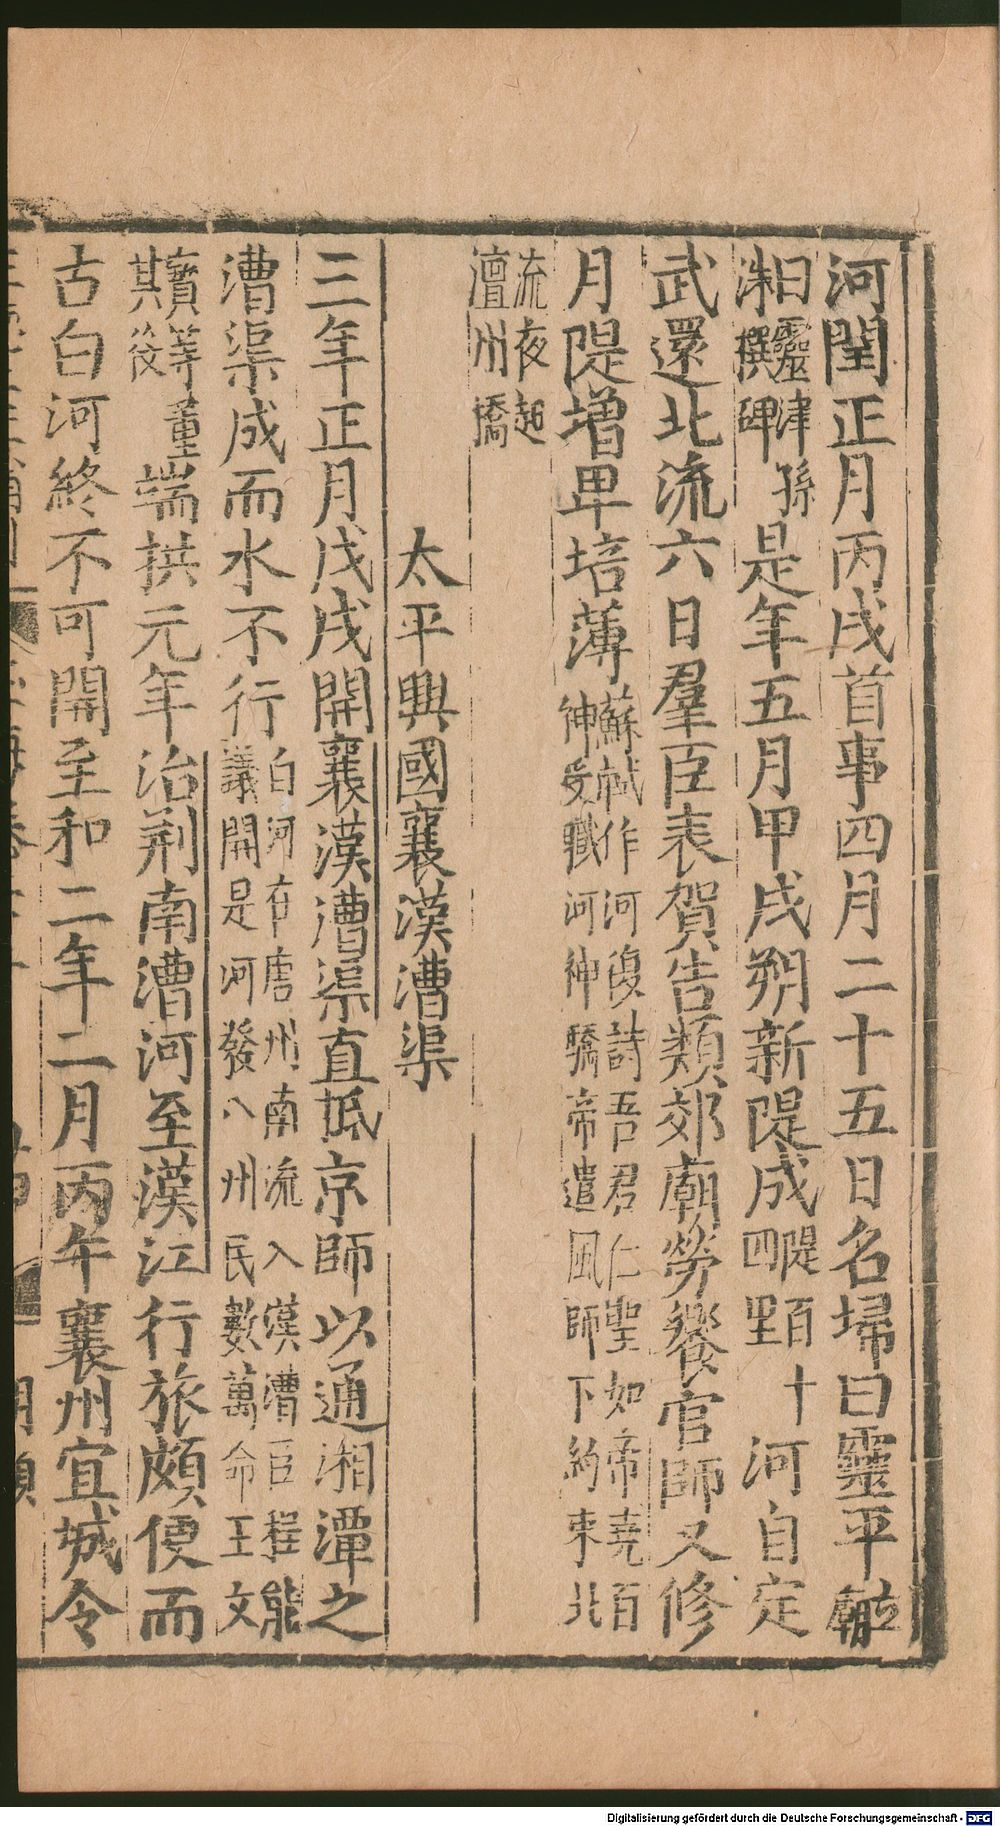 河閏正月丙戌首事四月二十五日名埽曰靈平立廟
曰靈津孫洙撰碑是年五月甲戌朔新隄成隄百十四里河自定
武還北流六日羣臣表賀告類郊廟勞饗官師又修
月隄增卑培薄蘇軾作河復詩吾君仁聖如帝堯百神受職河神驕帝遣風師下約束北
流夜起澶州橋
太平興國襄漢漕渠
三年正月戊戌開襄漢漕渠直抵京師以通湘潭之
漕渠成而水不行白河在唐州南流入漢漕臣程能議開是河發八州民數萬命王文
寶等董其役端拱元年治荆南漕河至漢江行旅頗便而
古白河終不可開至和二年二月丙午襄州宜城令
Digitalisierung gefördert durch die Deutsche Forschungsgemeinschaft - DFG